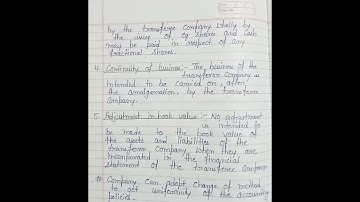 by the transferee company wholly by
the issue of eq shares and cash
may be paid in respect of any
fractional shares.
4. Continuity of busines :- The, busines of the
transferor company is
intended to be carried on, after,
the amalgamation, by the transferee
company.
5 Adjustment in book value :- No adjustment
is intended to
be made to the book value of
the assets and liabilities of the
transferor company when they are
incorporated in the financial
statement of the transferee company
# Company can adopt change of method
to get uniformity of the accounting
policies.